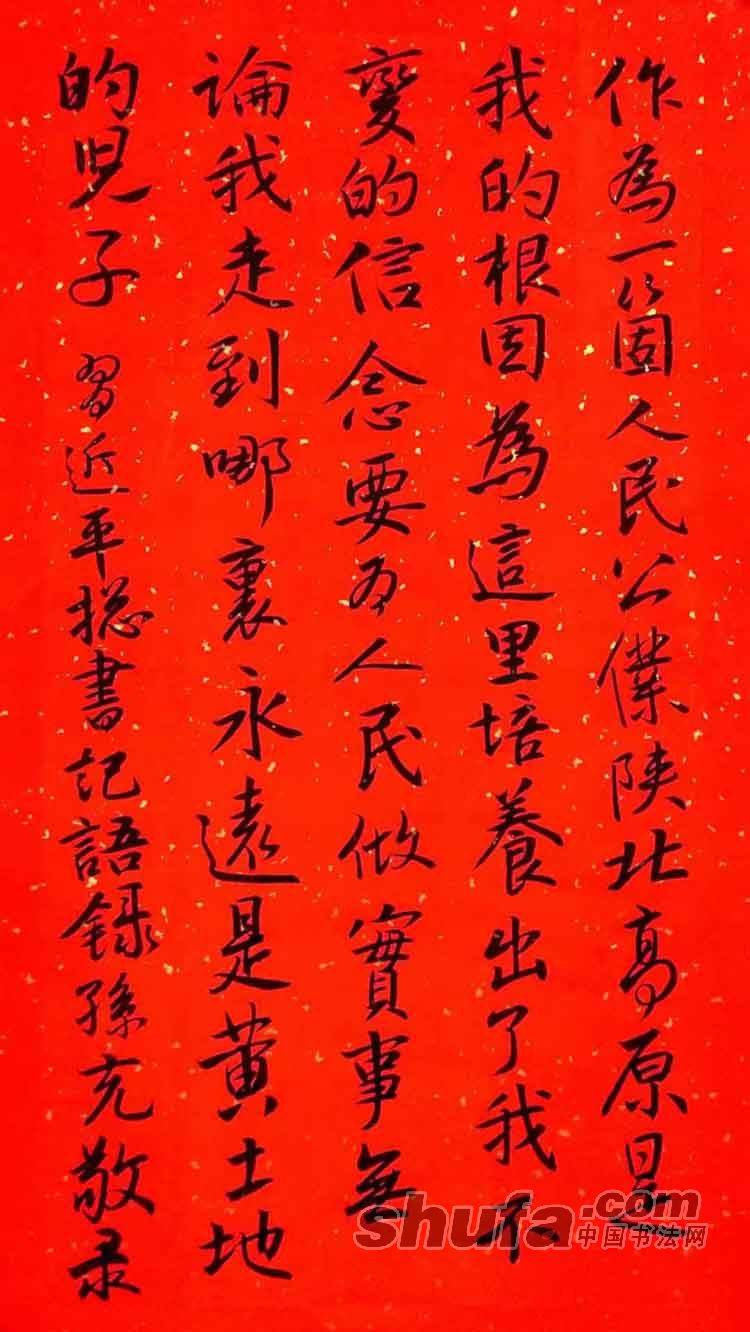 作為一箇人民公僕陝北高原是
我的根因為這里培養出了我不
變的信念要为人民做實事無
論我走到哪裏永遠是黃土地
的兒子 習近平揔書記語錄孫克敬录
shufa.com
中国书法网